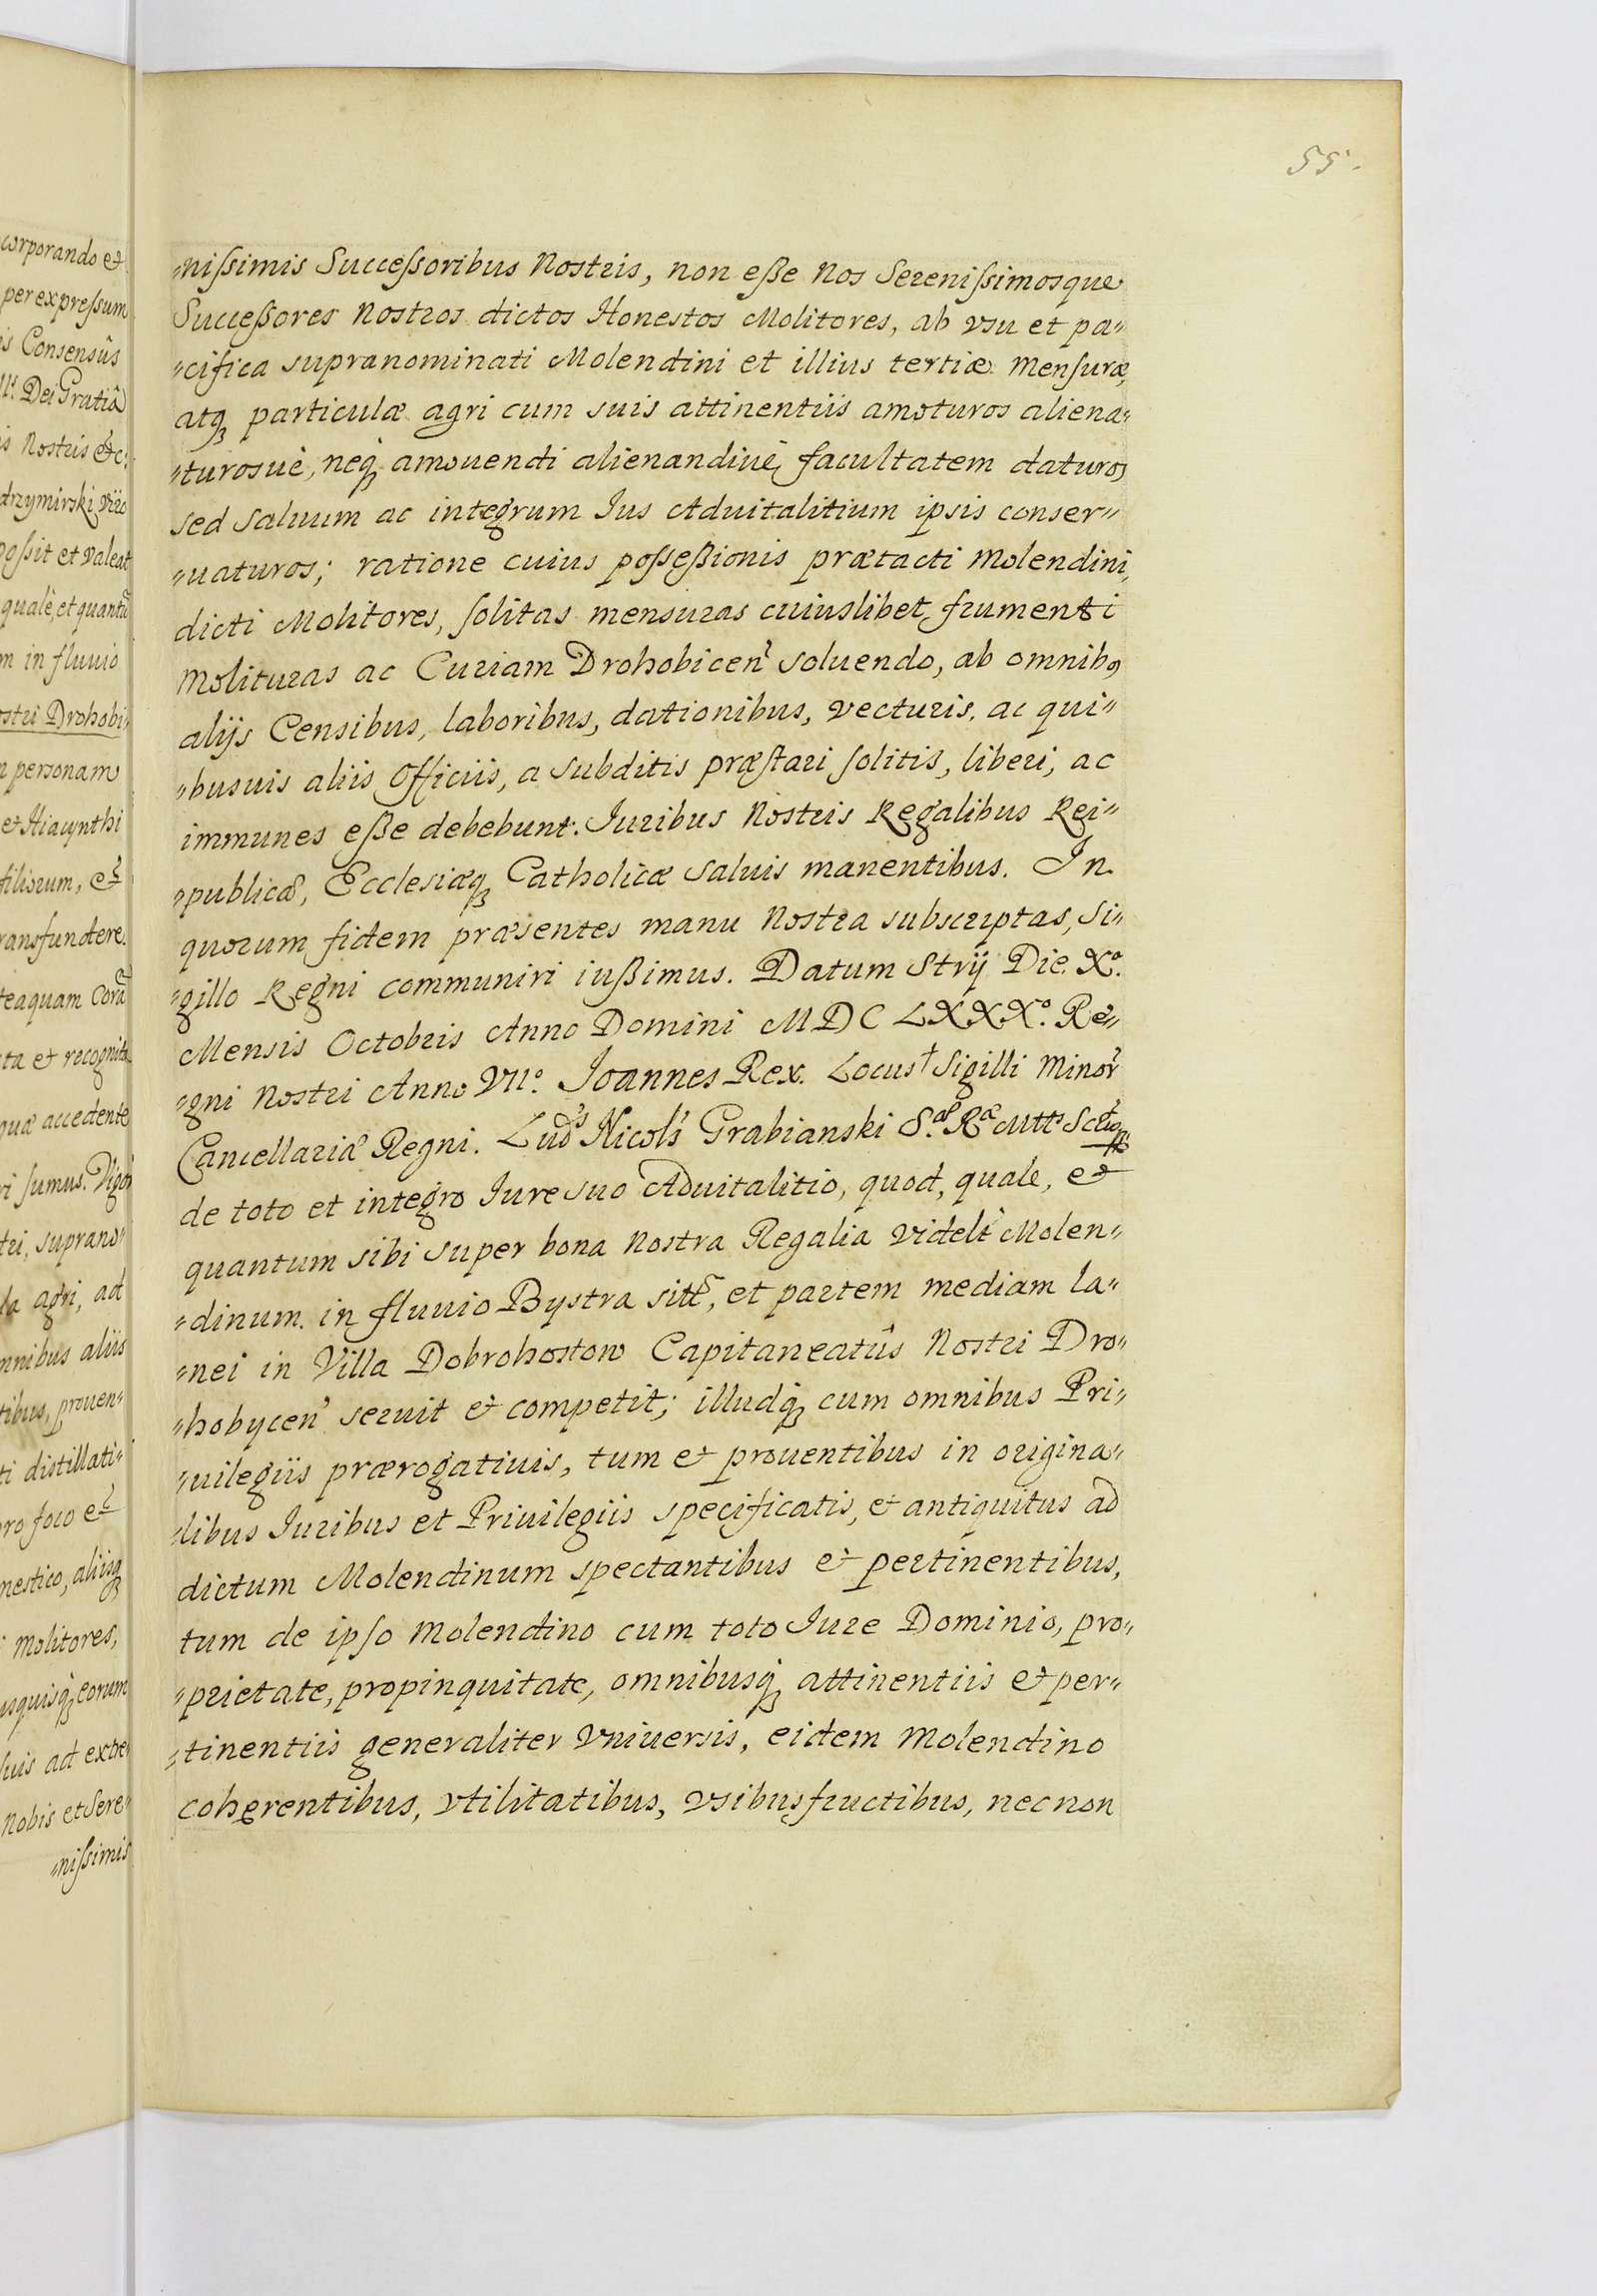 55.
corporando et
per expressum
is Consensûs
II.º Dei Gratiâ
is Nostris etc:
drzymirski, viro
possit et valeat
quale, et quantũ
m in fluuio
ostri Drohobi„
n personam
et Hiacynthi
filiorum, et
ransfundere.
teaquam Corã
ta et recognita
quæ accedente
ri sumus. Vigor
tri, suprano„
la agri, ad
mnibus aliis
tibus, prouen„
ti distillati„
pro foco et
mestico, aliisq
Molitores,
usquisq eorum
suis ad extre
Nobis et Sere„
„nissimis
„nissimis Successoribus Nostris, non esse Nos Serenissimosque
Successores Nostros dictos Honestos Molitores, ab vsu et pa„
„cifica supranominati Molendini et illius tertiæ Mensuræ,
atq particulæ agri cum suis attinentiis amoturos aliena„
„turosuè, neq amouendi alienandiuè facultatem daturos
sed saluum ac integrum Ius Aduitalitium ipsis conser„
„uaturos; ratione cuius possessionis prætacti Molendini,
dicti Molitores, solitas mensuras cuiuslibet frumenti
Molituras ac Curiam Drohobicen̉ soluendo, ab omnibꝯ
alijs Censibus, laboribus, dationibus, vecturis, ac qui„
„busuis aliis Officiis, a subditis præstari solitis, liberi, ac
immunes esse debebunt. Iuribus Nostris Regalibus Rei„
„publicæ, Ecclesiæq Catholicæ saluis manentibus. In
quorum fidem præsentes manu Nostra subscriptas, Si„
„gillo Regni communiri iussimus. Datum Strÿ Die Xº.
Mensis Octobris Anno Domini MDC LXXXº. Re„
„gni Nostri Anno VIIº. Joannes Rex. Locus † Sigilli Minor̉
Cancellariæ Regni. Ludˢ Nicol's Grabianski S.æ Ræ Mttˢ
de toto et integro Iure suo Aduitalitio, quod, quale, et
quantum sibi super bona Nostra Regalia videlt Molen„
„dinum in fluuio Bystra sitt̃, et partem mediam la„
„nei in Villa Dobrohostow Capitaneatûs Nostri Dro„
„hobycen̉ seruit et competit; illudq cum omnibus Pri„
„uilegiis prærogatiuis, tum et prouentibus in origina„
„libus Iuribus et Priuilegiis specificatis, et antiquitus ad
dictum Molendinum spectantibus et pertinentibus,
tum de ipso Molendino cum toto Iure Dominio, pro„
„prietate, propinquitate, omnibusq attinentiis et per„
„tinentiis generaliter vniuersis, eidem Molendino
cohęrentibus, vtilitatibus, vsibusfructibus, nec non